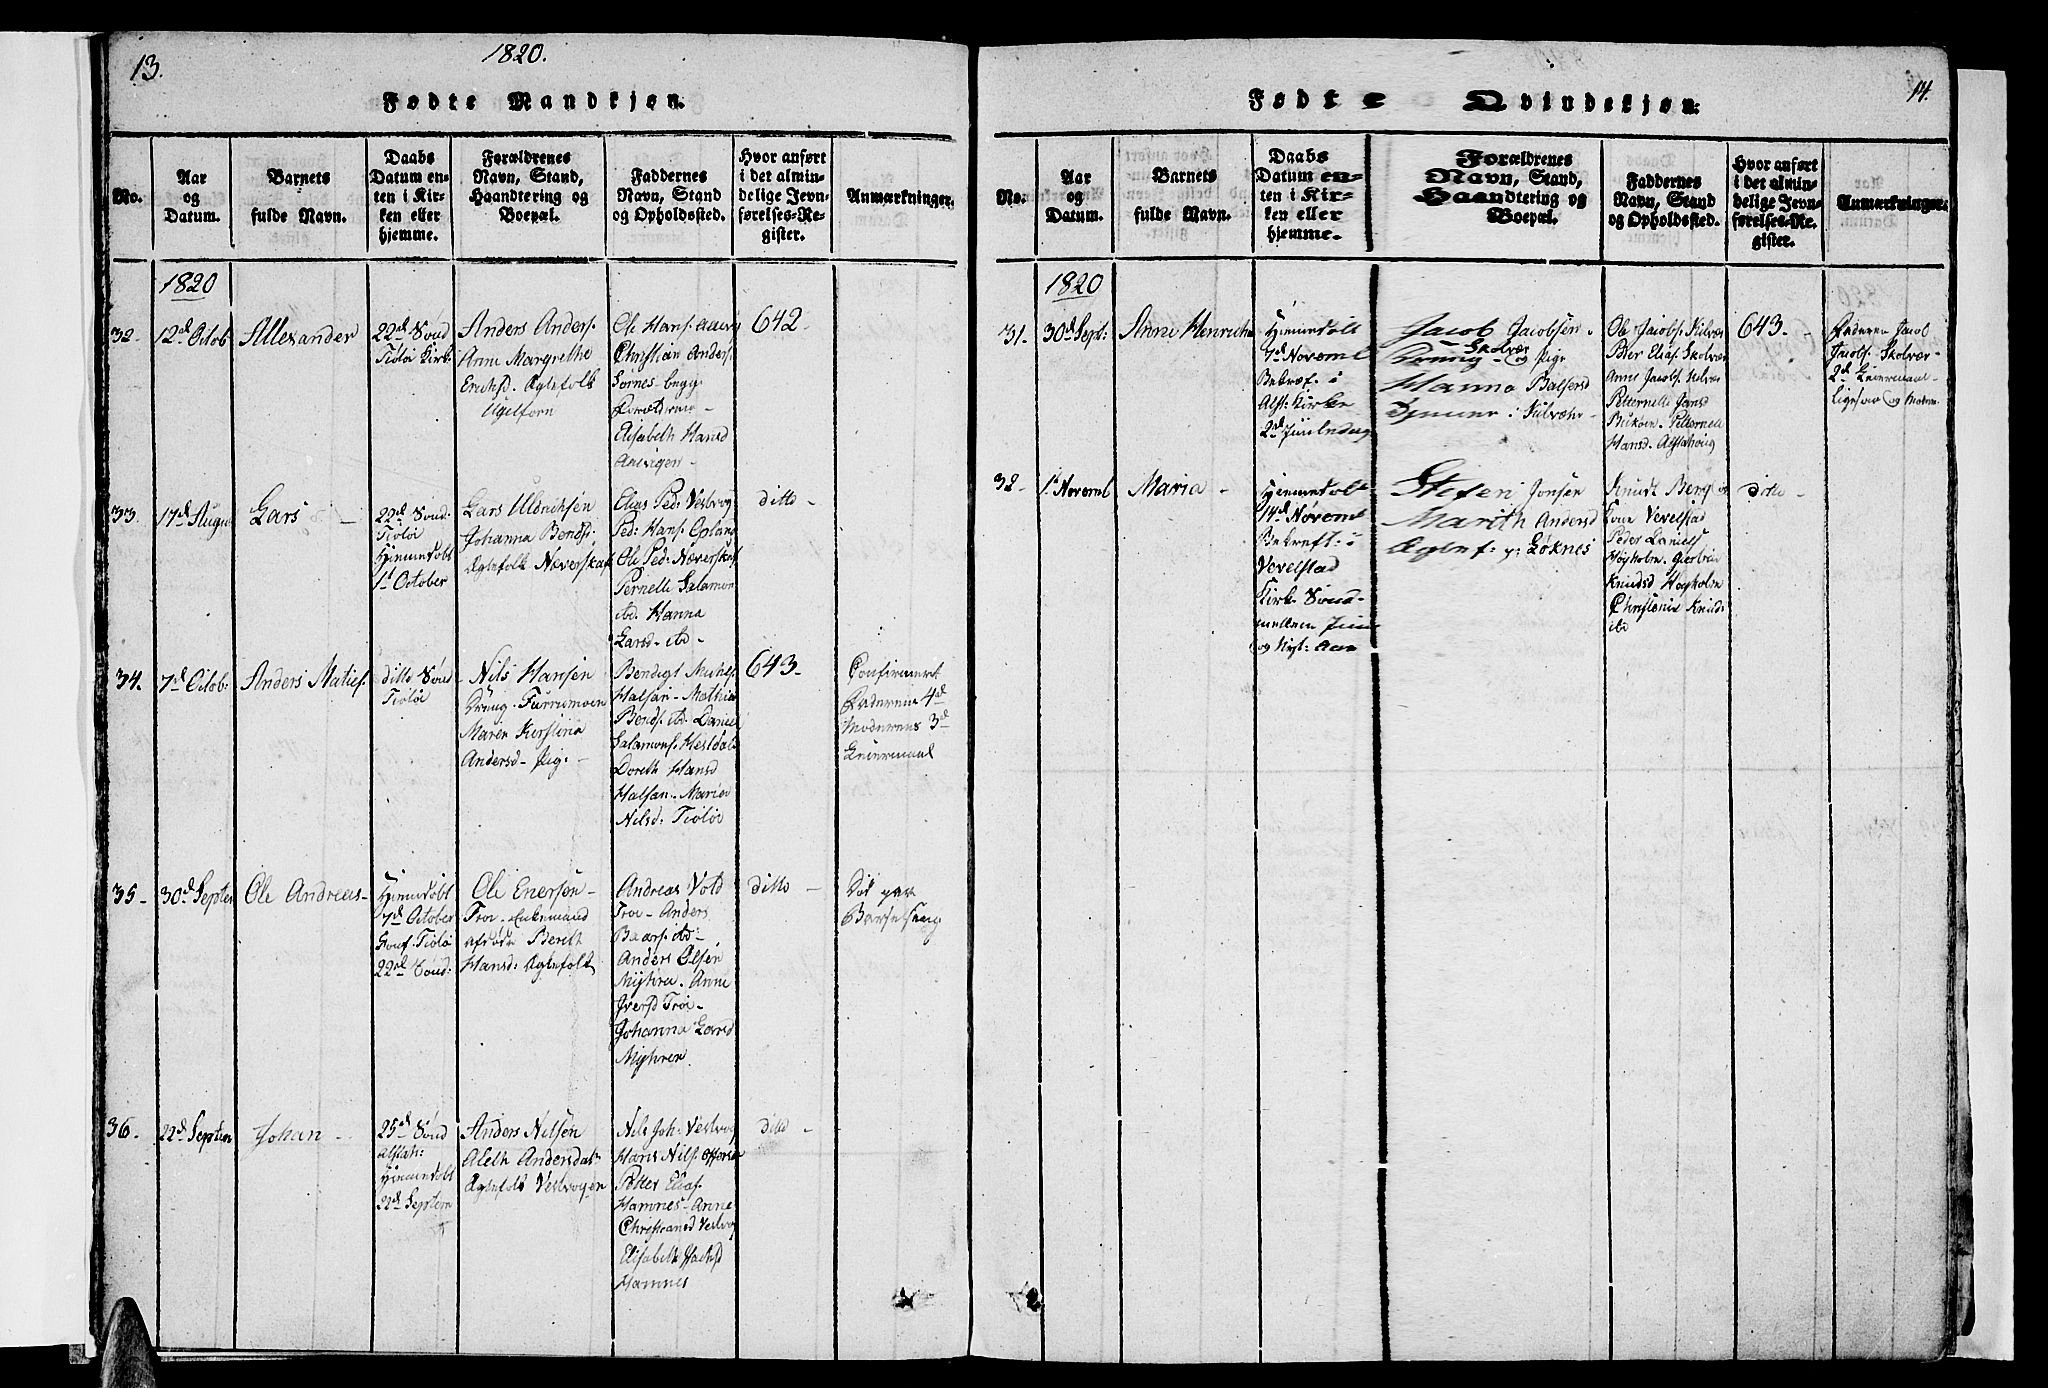 13.
1820.
Fødte Mandkjøn.
No.
Aar
og
Datum.
Barnets
fulde Navn.
Daabs
Datum en-
ten i Kir-
ken eller
hjemme.
Forældrenes
Navn, Stand,
Haandtering og
Boepæl.
Faddernes
Navn, Stand
og Opholdssted.
Hvor anført
i det almin-
delige Jevn-
førelses-Re-
gister.
Anmærkninger.
1820
32.
12d Octob
Allexander
22d Sønd
Tiøtø Kirk:
Anders Anders.
Anne Margrethe
Erichsd. Ægtefolk
Ugelforn
Ole Hans.
Christian Anders.
Sørnes- begge
Forældrene-
Elisabeth Hansd
642-
33.
17d Augu
Lars
22d Sønd:
Tiøtø
Hjemmdøbt
1t October
Lars Uldriksen
Johanna Bendsd.
Ægtefolk Næverskaf
Elias Ped: Vestvog
Ped: Hans:
Ole Ped: Næverskaf
Pernelle Salamon
itd. Hanna
Larsd- itd-
ditto -
34.
7d Octob:
Anders Matief.
ditto Sønd
Tiøtø
Nils Hansen
Dreng- Furrumoen
Maren Kirstina
Andersd- Pige-
Bendigt
Halsan- Mathia
Bends. itd. Daniel
Salamons.
Doreth Hansd
Halsan- Maria
Nilsd: Tiøtø
643.
Confirmeret
Faderens 4d
Moderens 3d
Leiermaal
35-
30d Septem
Ole Andreas-
Hjemmdøbt
7d October
Conf. Tiøtø
22d Sønd:
Ole Enersøn-
Troe- Enkemand
afdøde Berith
Hansd: Ægtefolk
Andreas Vold
Troe- Anders
itd-
Anders Olsen
Myhren. Anne
Iversd Troe-
Johanna Larsd
Myhren
ditto -
Død paa
Barselseng
36.
22d Septem
Johan -
25d Sønd
Alstah:
Hjemmdøbt
22d Septem
Anders Nilsen
Aleth Andersdat-
Ægtefolk Vestvogen
Nils Joh: Vestvog
Hans Nils.
Petter Elias.
Hamnes- Anne
Christiansd Vestvog
Elisabeth Isachsd
Hamnes
ditto -
14.
Fødte Qvindekjøn.
No.
Aar
og
Datum.
Barnets
fulde Navn.
Daabs
Datum en-
ten i Kir-
ken eller
hjemme.
Forældrenes
Navn, Stand,
Haandtering og
Boepæl.
Faddernes
Navn, Stand
og Opholdssted.
Hvor anført
i det almin-
delige Jevn-
førelses-Re-
gister.
Anmærkninger.
1820
31.
30d Sept:
Anne Henricha
Hjemmdøbt
7d Noveml
Bekræf. i
Alst: Kirke
2d Juuledag
Jacob Jacobsen
Skolvær
Dreng- og Pige
Hanna Balsersd
Ole Jacobs.
Peer Elias. Skolvær
Anne Jacobs.
Petternelle Jansd
Petternell
Hansd. Alstahoug
643.
Faderen Jacob
Jacobs. Skolvær-
2d Leiermaal-
Ligesaa og Moderen
32-
1t Noveml
Maria -
Hjemmdøbt
14d Noveml
Bekræft: i
Vevelstad
Kirk- Sønd-
mellem Juul
og Nyt: Aar
Steferi Jonsen
Marith Andersd
Ægtef: p: Løknes
Knudt Berg
Vevelstad
Peder Daniels
Høyholm.
Knudsd Høyholm
Christense Knuds
itd
ditto -